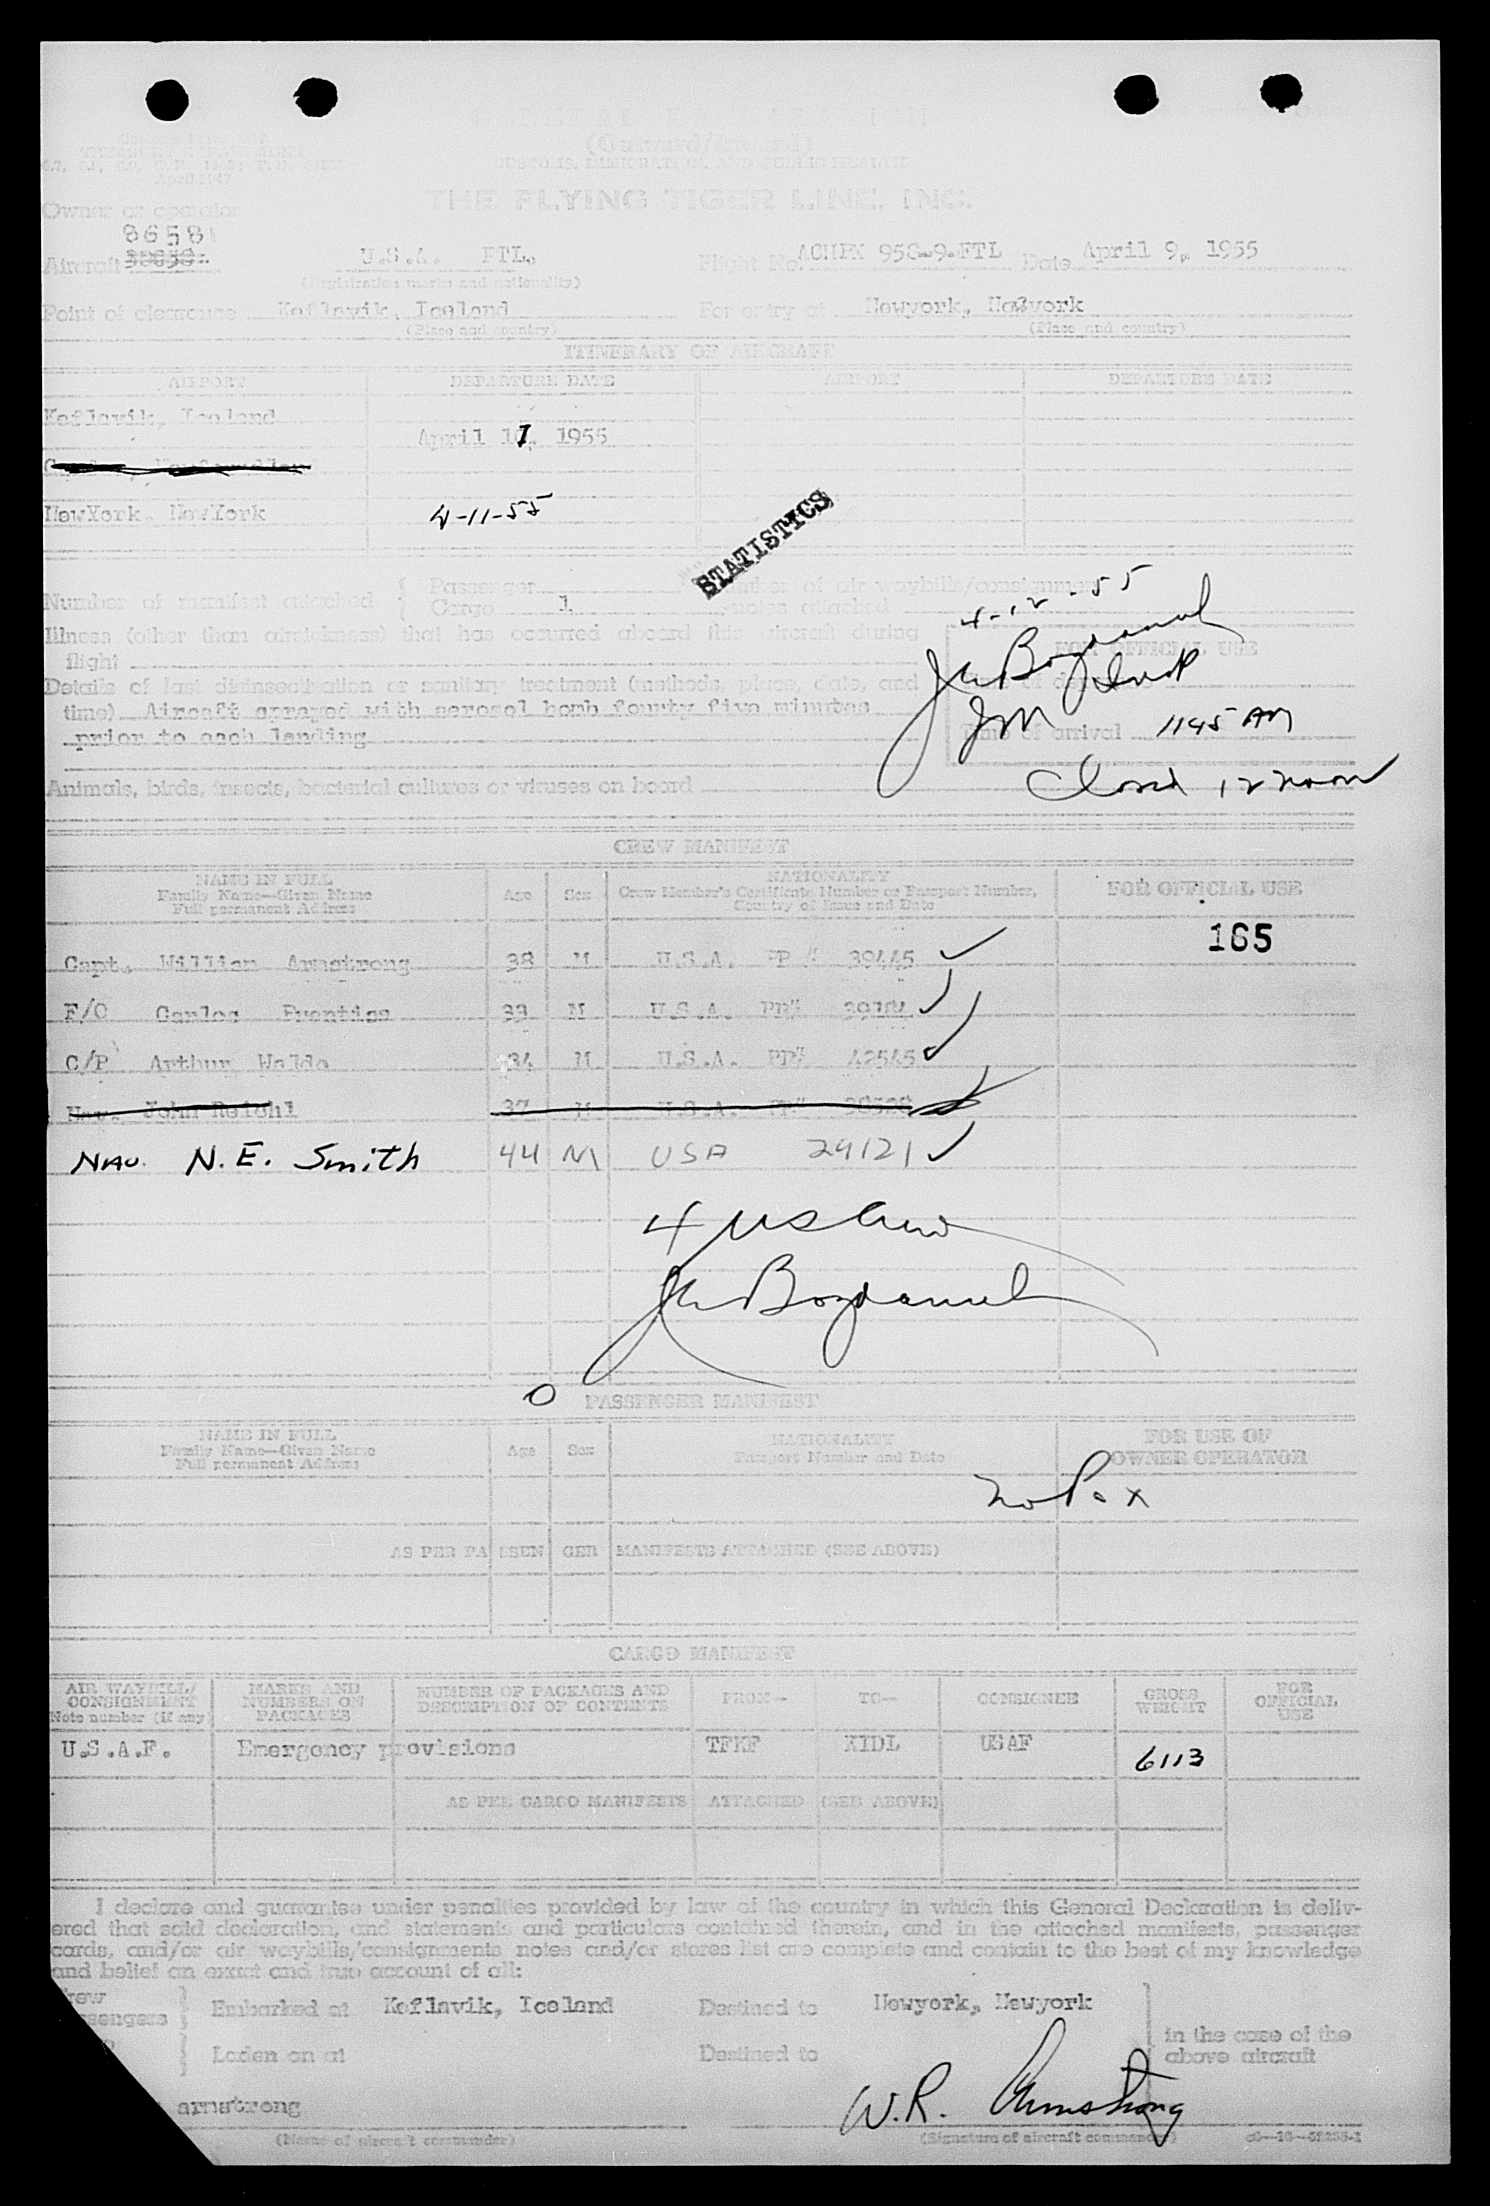 (Outward/Inward)
CUSTOMS, IMMIGRATION, AND PUBLIC HEALTH
April 1947
THE FLYING TIGER LINE, INC.
Owner or operator
8658
Aircraft U.S.A. FTL. Flight No. ACHPK 958-9-FTL Date April 9, 1955
(Registration marks and nationality)
Point of clearance Keflavik, Iceland For entry at Newyork, Newyork
(Place and country) (Place and country)
ITINERARY OF AIRCRAFT
AIRPORT DEPARTURE DATE AIRPORT DEPARTURE DATE
Keflavik, Iceland
April 11, 1955
NewYork, NewYork 4-11-55
STATISTICS
Number of manifest attached { Passenger number of air waybills/consignment
Cargo 1 notes attached
4-12-55
Illness (other than airsickness) that has occurred aboard this aircraft during
flight
FOR OFFICIAL USE
Details of last disinsectization or sanitary treatment (methods, place, date, and
time) Aircaft sprayed with aerosol bomb fourty five minutes
prior to each landing
Time of arrival 1145 AM
Closed 12 noon
Animals, birds, insects, bacterial cultures or viruses on board
CREW MANIFEST
NAME IN FULL
Family Name—Given Name
Full permanent Address
Age Sex
NATIONALITY
Crew Member's Certificate Number or Passport Number,
Country of Issue and Date
FOR OFFICIAL USE
165
Capt. William Armstrong 38 M U.S.A. PP # 39445
F/O Carlos Prentiss 33 M U.S.A. PP#
C/P Arthur Waldo 34 M U.S.A. PP# 42545
Nav. John Reichl 37 M U.S.A. PP#
Nav. N.E. Smith 44 M USA 29121
4 US Crew
O PASSENGER MANIFEST
NAME IN FULL
Family Name—Given Name
Full permanent Address
Age Sex
NATIONALITY
Passport Number and Date
FOR USE OF
OWNER OPERATOR
no Pax
AS PER PASSENGER MANIFESTS ATTACHED (SEE ABOVE)
CARGO MANIFEST
AIR WAYBILL/
CONSIGNMENT
Note number (if any)
MARKS AND
NUMBERS ON
PACKAGES
NUMBER OF PACKAGES AND
DESCRIPTION OF CONTENTS
FROM— TO— CONSIGNEE
GROSS
WEIGHT
FOR
OFFICIAL
USE
U.S.A.F. Emergency provisions TFKF KIDL USAF 6113
AS PER CARGO MANIFESTS ATTACHED (SEE ABOVE)
I declare and guarantee under penalties provided by law of the country in which this General Declaration is deliv-
ered that said declaration, and statements and particulars contained therein, and in the attached manifests, passenger
cards, and/or air waybills/consignments notes and/or stores list are complete and contain to the best of my knowledge
and belief an exact and true account of all:
rew
ssengers } Embarked at Keflavik, Iceland Destined to Newyork, Newyork
in the case of the
above aircraft
} Laden on at Destined to
armstrong W.R. Armstrong
(Name of aircraft commander) (Signature of aircraft commander)